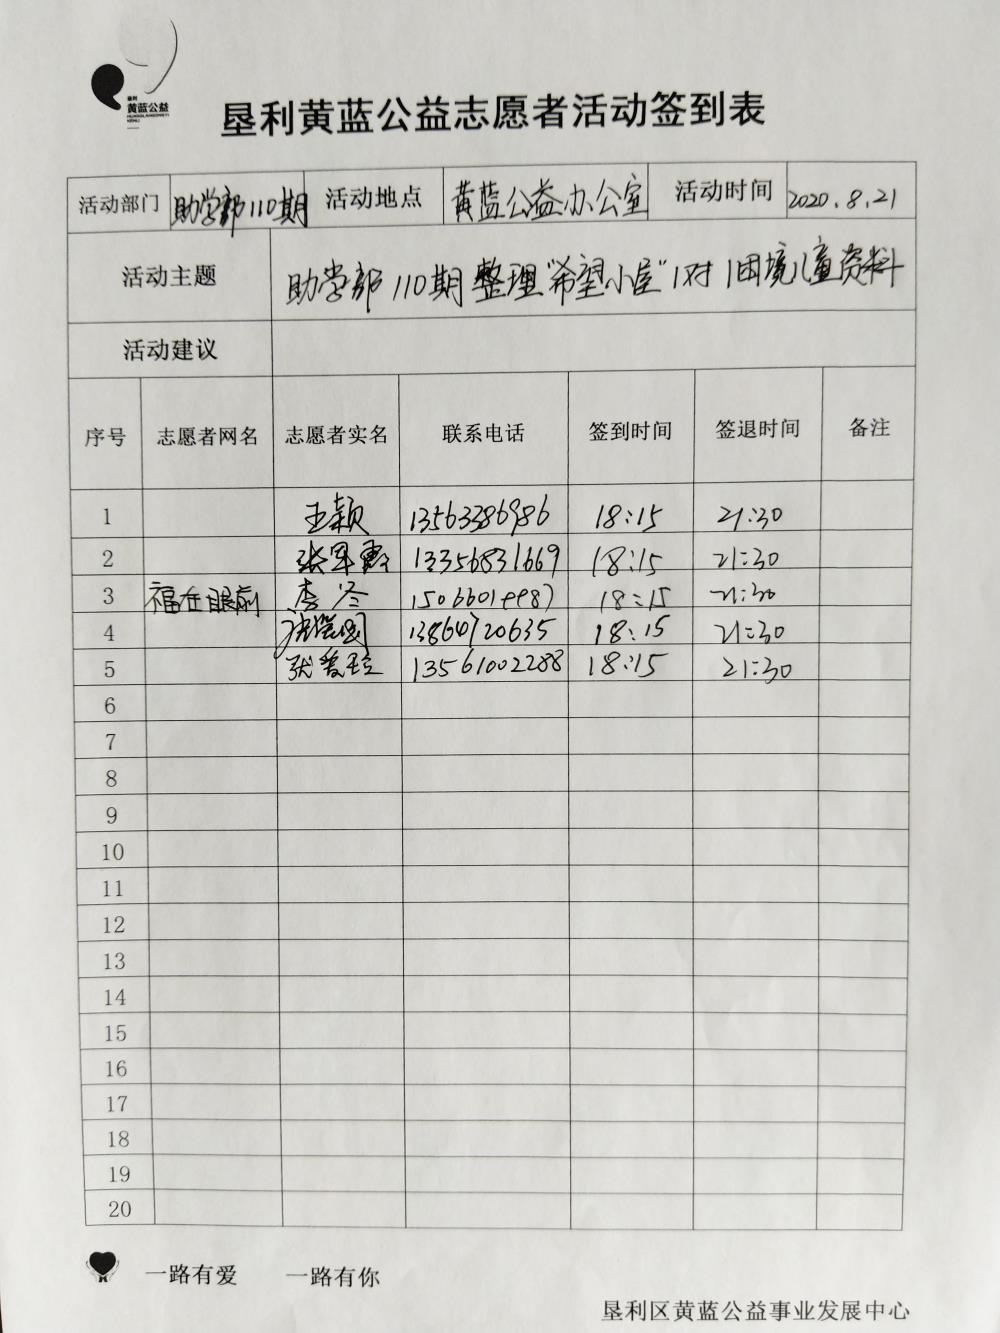 垦利
黄蓝公益
HUANGLANGONGYI
KENLI
垦利黄蓝公益志愿者活动签到表
活动部门 助学部110期 活动地点 黄蓝公益办公室 活动时间 2020.8.21
活动主题 助学部110期整理"希望小屋"1对1困境儿童资料
活动建议
序号 志愿者网名 志愿者实名 联系电话 签到时间 签退时间 备注
1 王颖 13563386986 18:15 21:30
2 张军霞 13356831669 18:15 21:30
3 福在眼前 李冬 15066019987 18:15 21:30
4 13864720635 18:15 21:30
5 张爱玲 13561002288 18:15 21:30
6
7
8
9
10
11
12
13
14
15
16
17
18
19
20
一路有爱 一路有你
垦利区黄蓝公益事业发展中心